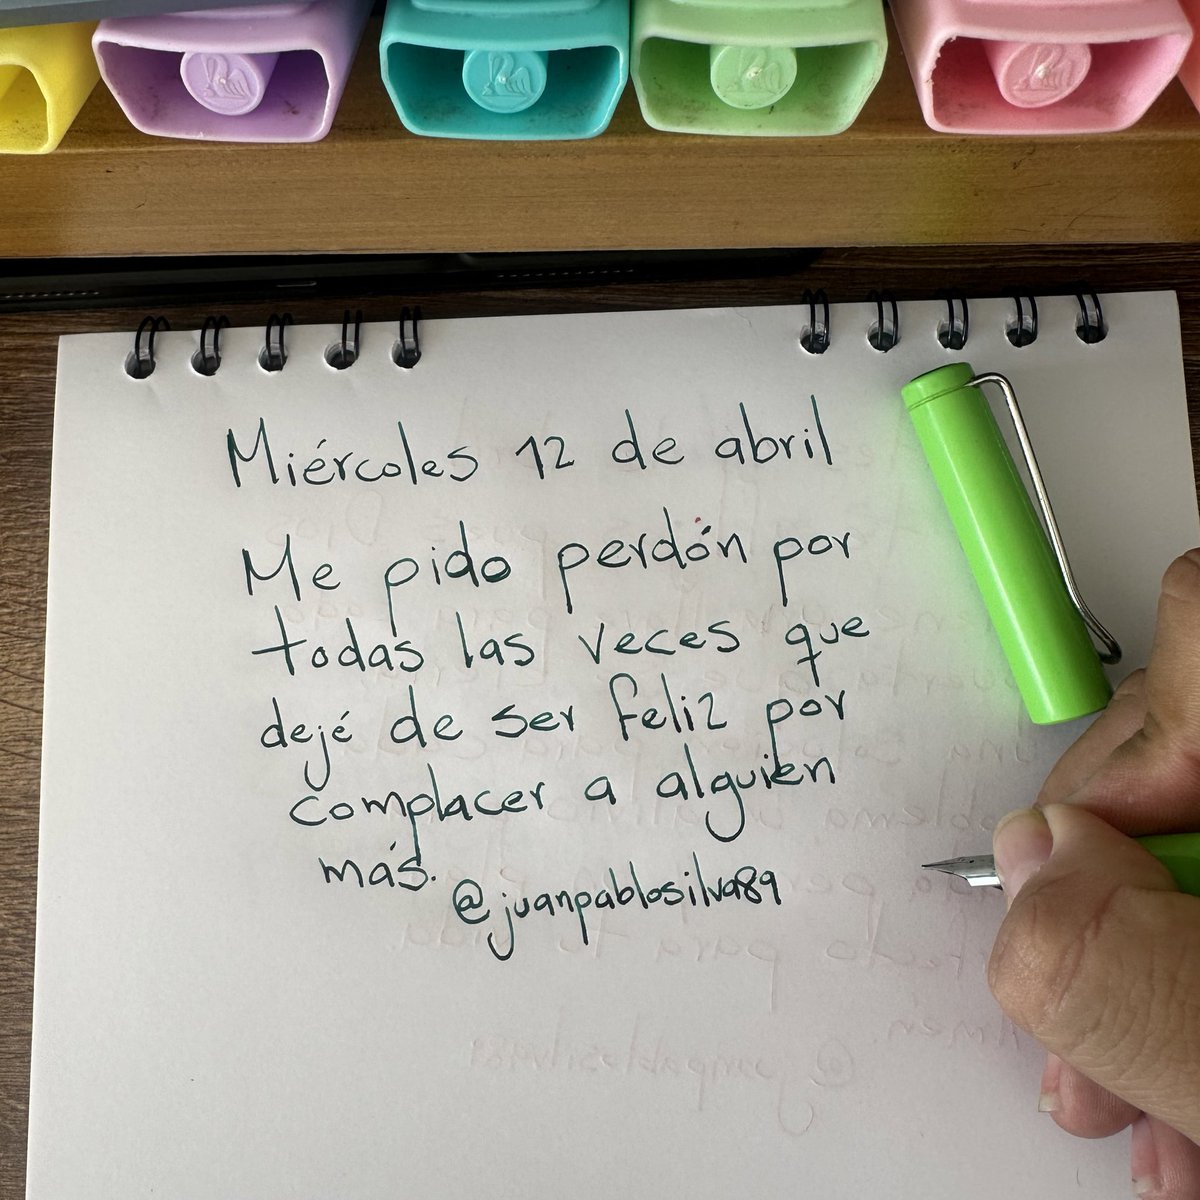 Miércoles 12 de abril
Me pido perdón por
todas las veces que
dejé de ser feliz por
complacer a alguien
más.
@juanpablosilva89